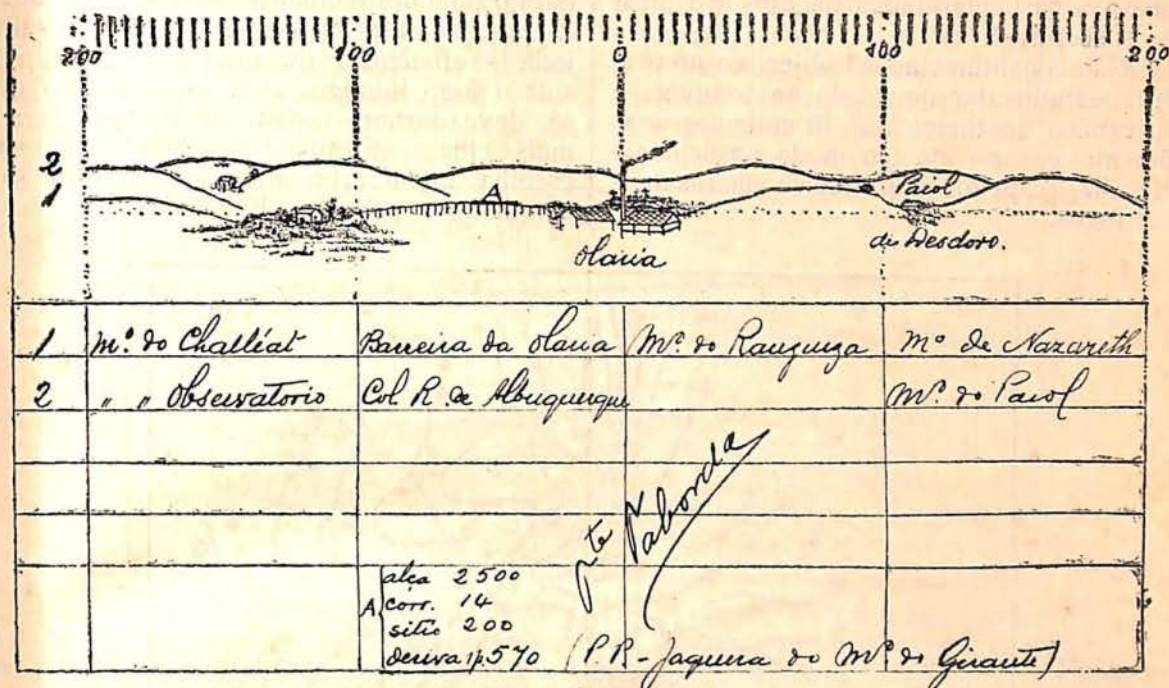 200 100 0 100 200
2
1
A
Paiol
de Deodoro.
Olaria
1 M.º do Challéat Barreira da Olaria M.º do Raugunga M.º de Nazareth
2 " " Observatorio Col R. de Albuquerque M.º do Paiol
Taborda
alça 2500
A corr. 14
sitio 200
deriva 1p.570 (P.R - Jaqueira do M.º do Girante)